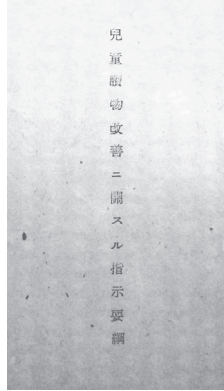 兒童讀物改善ニ關スル指示要綱